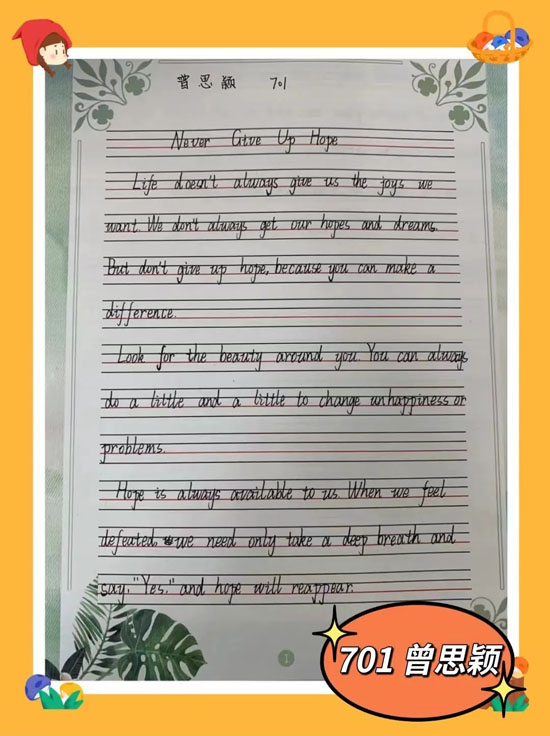 曾思颖 701
Never Give Up Hope
Life doesn't always give us the joys we
want. We don't always get our hopes and dreams.
But don't give up hope, because you can make a
difference.
Look for the beauty around you. You can always
do a little and a little to change unhappiness or
problems.
Hope is always available to us. When we feel
defeated, we need only take a deep breath and
say, "Yes," and hope will reappear.
1
701 曾思颖